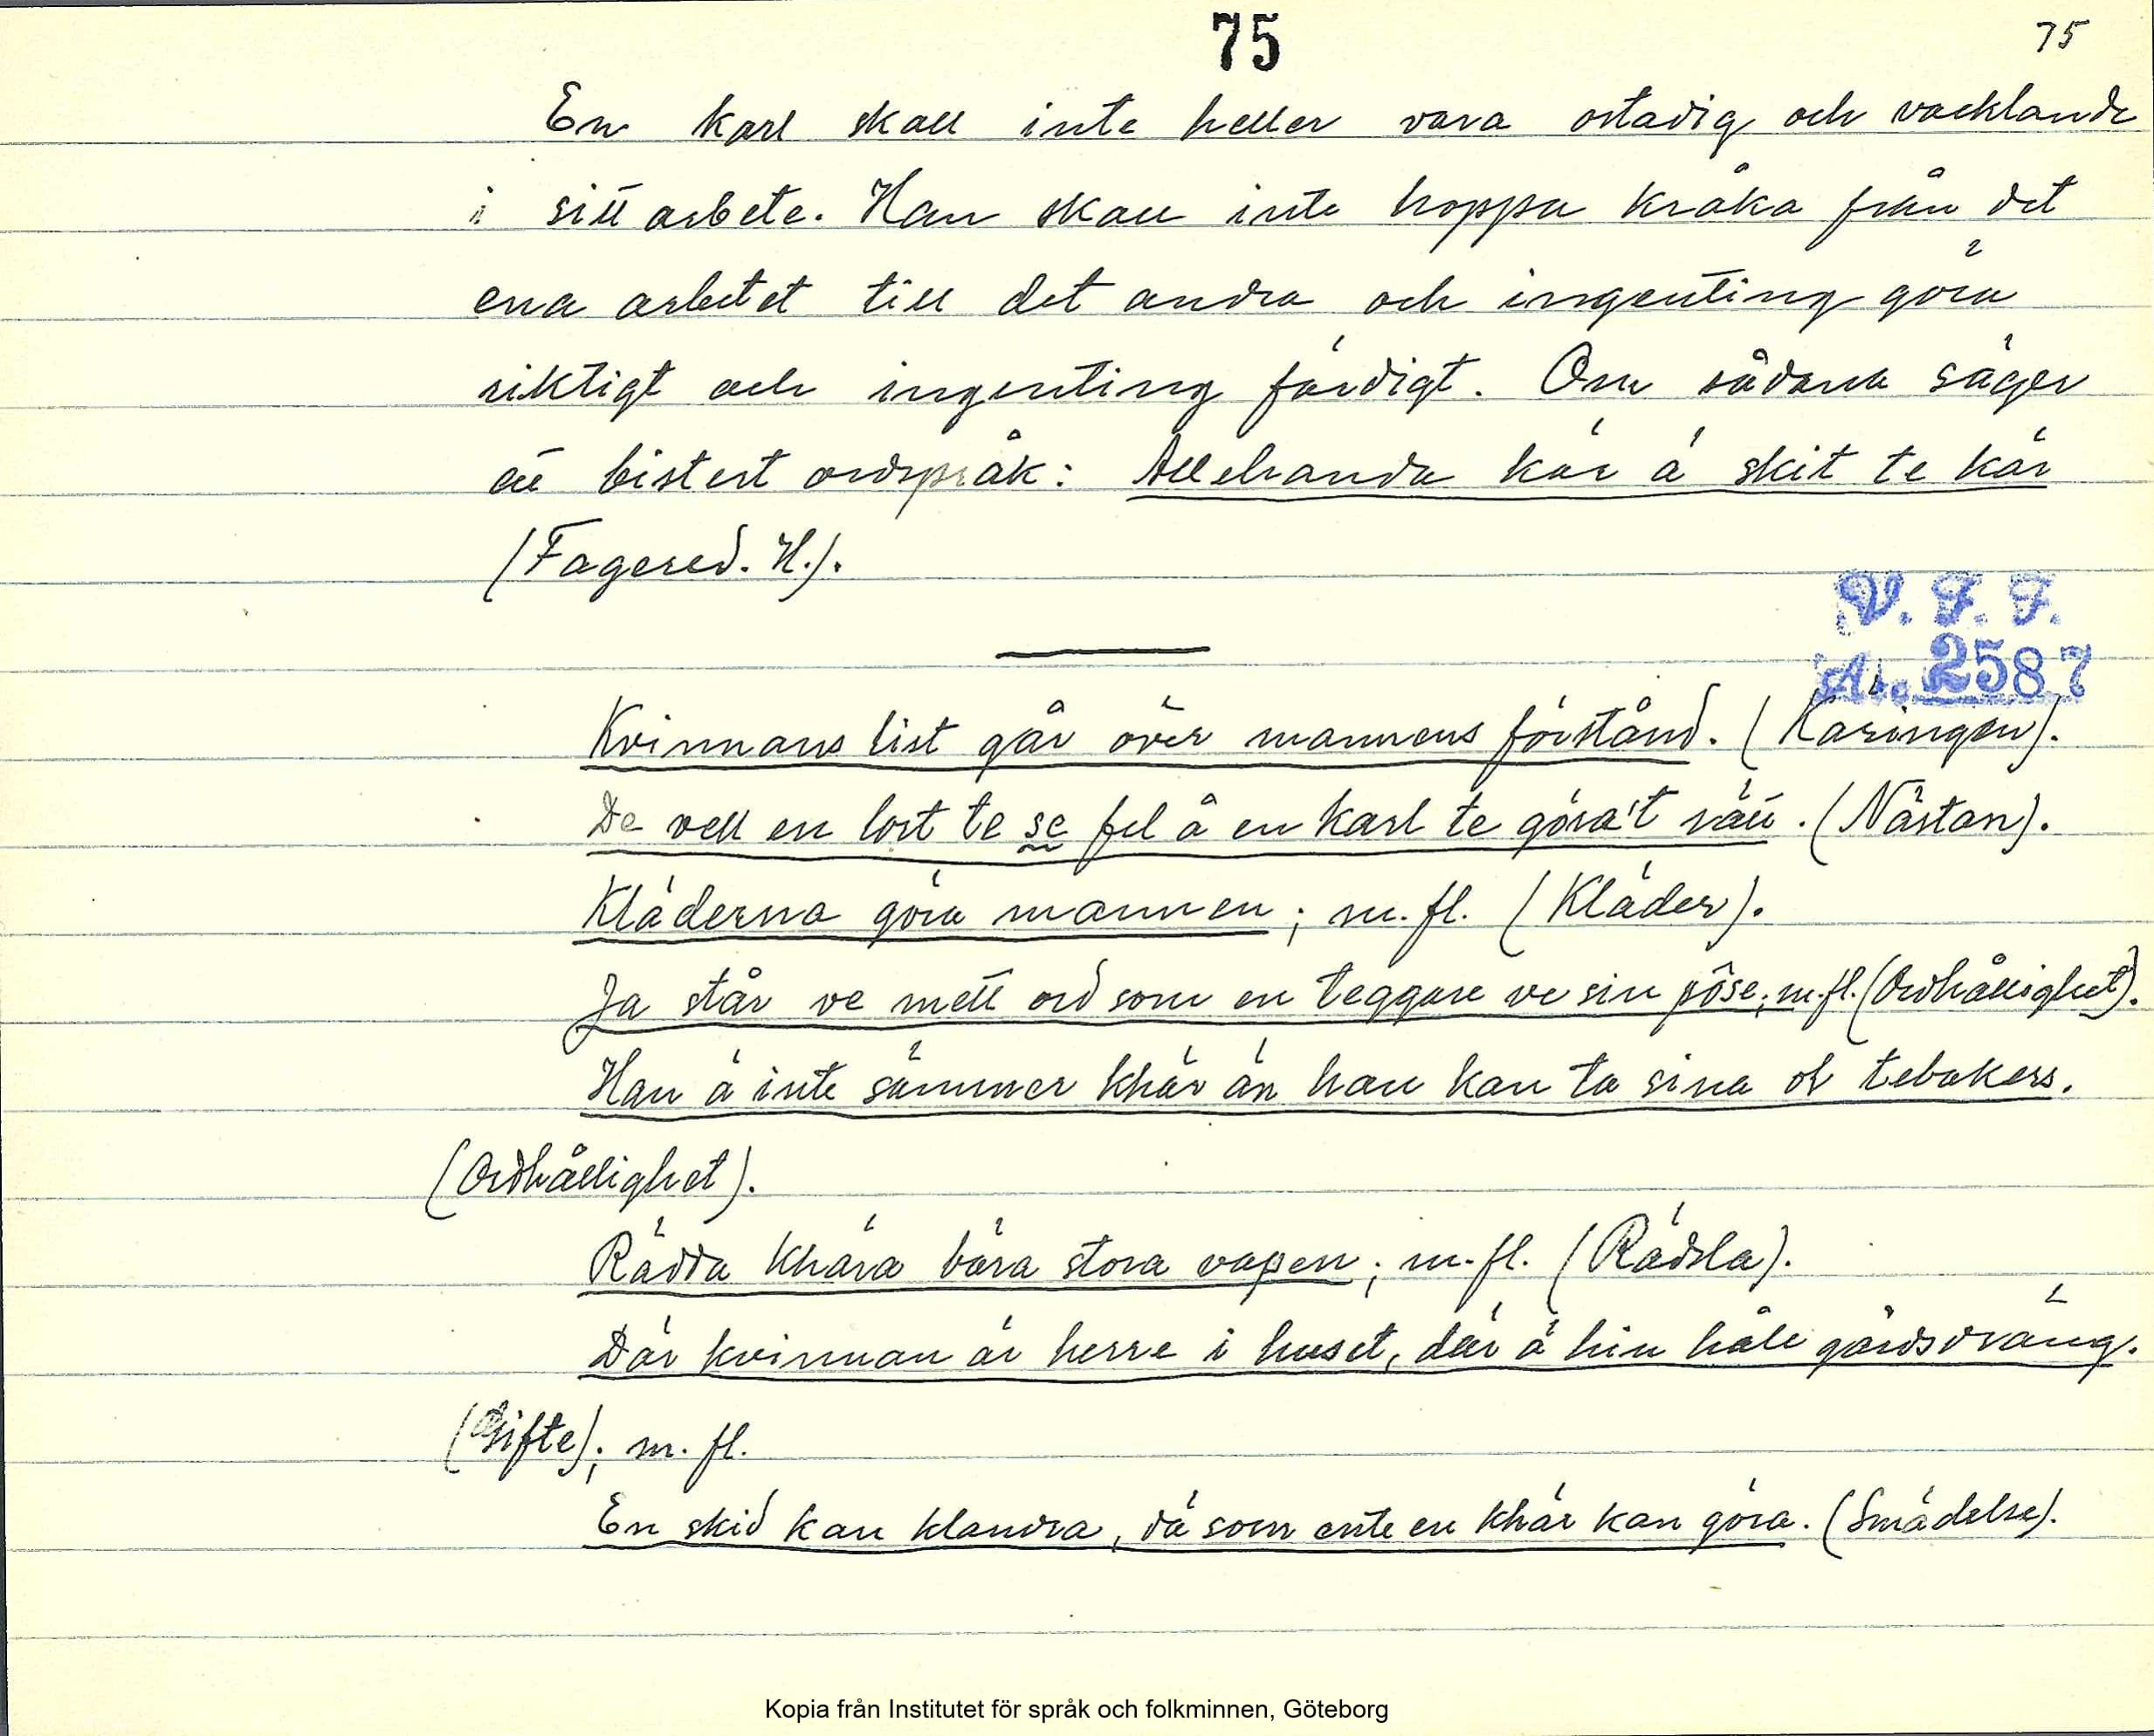 75
75
En karl skall inte heller vara ostadig och vacklande
i sitt arbete. Han skall inte hoppa kråka från det
ena arbetet till det andra och ingenting göra
riktigt och ingenting färdigt. Om sådana säger
ett bistert ordspråk: Allehanda kär ä skit te kär
(Fagered. H.).
V. F. F.
Ac. 2587
Kvinnans list går över mannens förstånd. (Käringen).
De vell en lort te se fel å en karl te göra't rätt. (Nästan).
Kläderna göra mannen; m.fl. (Kläder).
Ja står ve mett ord som en teggare ve sin pôse; m.fl. (Ordhållighet).
Han ä inte sämmer khär än han kan ta sina ol tebakers.
(Ordhållighet).
Rädda khära bära stora vapen; m.fl. (Rädsla).
Där kvinnan är herre i huset, där ä hin håle gårdsdräng.
(Gifte); m. fl.
En skid kan klandra, dä som ente en khär kan göra. (Smädelse).
Kopia från Institutet för språk och folkminnen, Göteborg